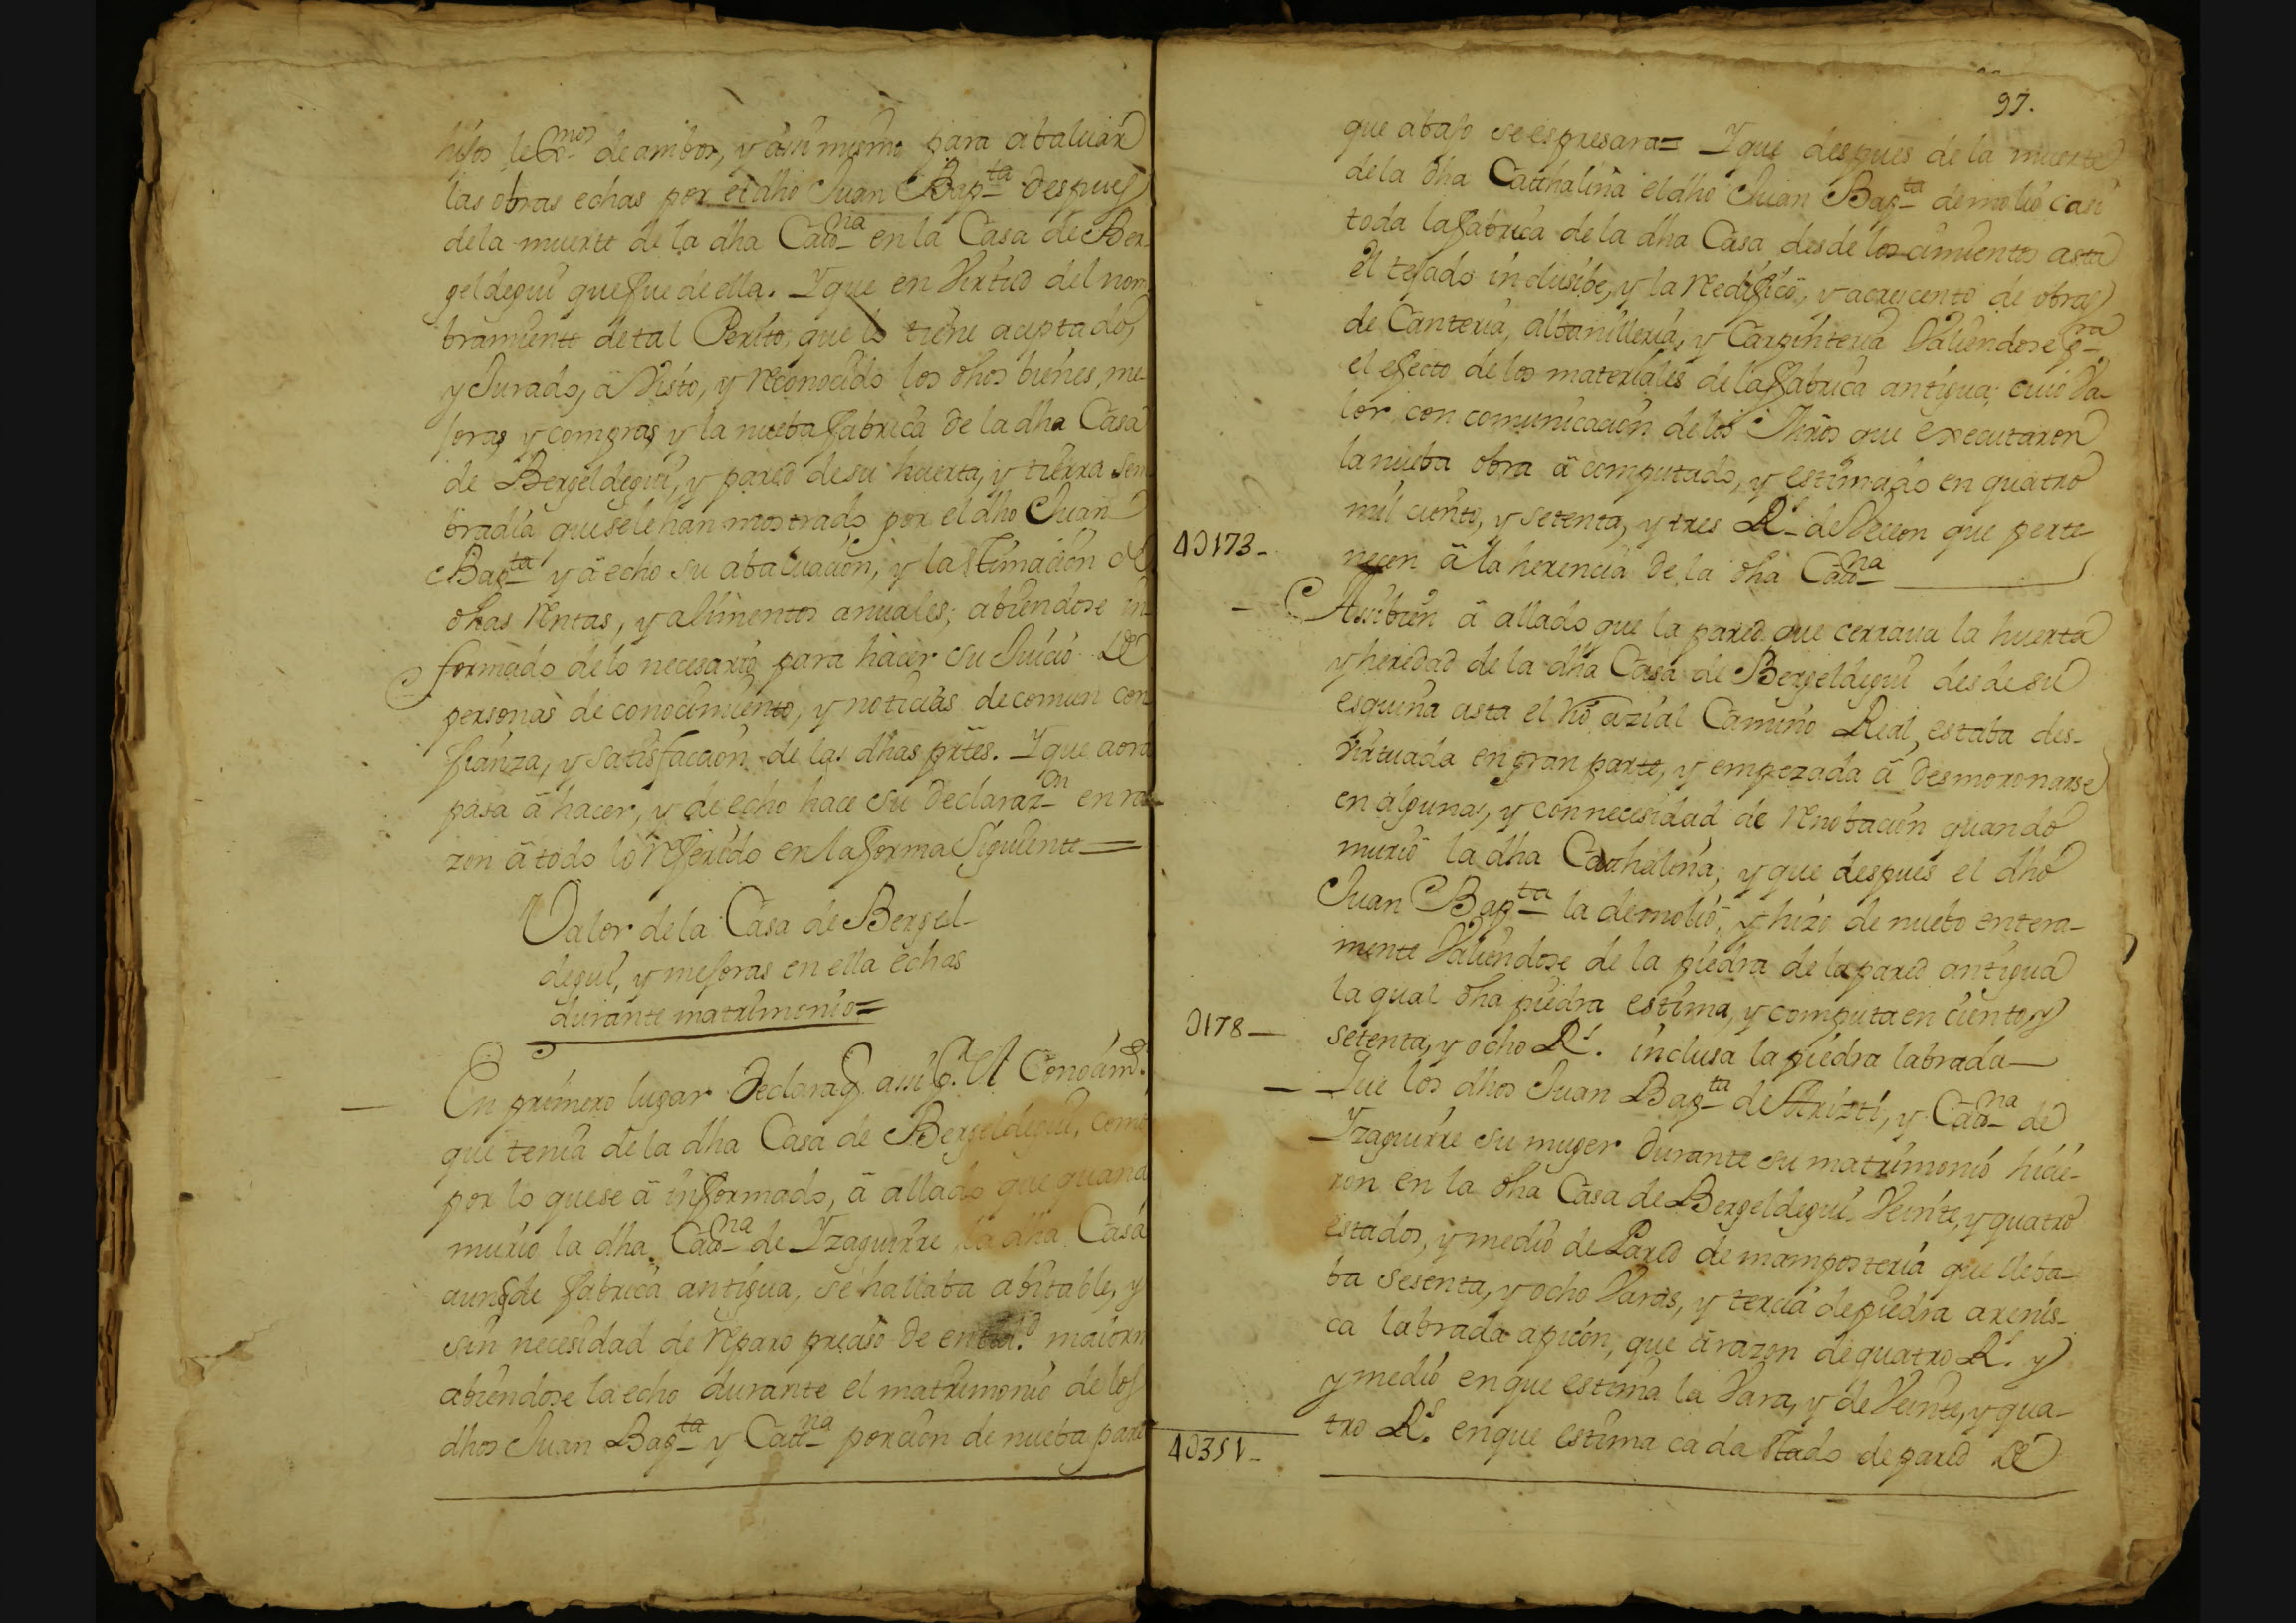 hijos lexmos de ambos, y asi mismo para abaluar
las obras echas por el dho Juan Bapta despues
de la muerte de la dha Catna en la Casa de Ber-
geldegui que fue de ella. Y que en Virtud del nom
bramiento de tal Perito, que lo tiene aceptado,
y Jurado, â Visto, y reconocido los dhos bienes, me-
joras y compras y la nueba fabrica de la dha Casa
de Bergeldegui, y pared de su huerta, y tierra sem
bradia que se le han mostrado por el dho Juan
Bapta y â echo su abaluacion, y la estimacion de
dhas rentas, y alimentos anuales; abiendose in
formado de lo necesario para hacer su Juicio de
personas de conocimiento, y noticias de comun con
fianza, y satisfaccion de las dhas prtes. Y que aora
pasa â hacer, y de echo hace su declarazon en ra
zon â todo lo referido en la forma Siguiente=
Valor de la Casa de Bergel-
degui, y mejoras en ella echas
durante matrimonio=
En primero lugar Declara q. assi p. el Conocimto.
que tenia de la dha Casa de Bergeldegui, como
por lo que se â informado, â allado que quando
murio la dha Catna de Yzaguirre la dha Casa
aunq de fabrica antigua, se hallaba abitable, y
sin necesidad de reparo preciso de entidd. maiorm
abiendose la echo durante el matrimonio de los
dhos Juan Bapta y Catna porcion de nueba pared
97.
que abajo se espresara= Y que despues de la muerte
de la dha Cathalina el dho Juan Bapta demolio casi
toda la fabrica de la dha Casa desde los cimientos asta
el tejado inclusibe, y la redifico, y acrecento de obras
de Canteria, albanilleria, y Carpinteria Valiendose pra
el efecto de los materiales de la fabrica antigua; cuio Va-
lor, con comunicacion de los Mros que executaron
la nueba obra â computado, y estimado en quatro
mil ciento, y setenta, y tres Rs de Vellon que perte
4D173-
necen â la herencia de la dha Catna
- Assibien â allado que la pared que cerraua la huerta
y heredad de la dha Casa de Bergeldegui desde su
esquina asta el rio azial Camino Real, estaba des-
virtuada en gran parte, y empezada â desmoronarse
en algunas, y con necesidad de renobacion quando
murio la dha Cathalina; y que despues el dho
Juan Bapta la demolio, y hizo de nuebo entera-
mente Valiendose de la piedra de la pared antigua
la qual dha piedra estima, y computa en ciento, y
D178-
setenta, y ocho Rs. inclusa la piedra labrada-
- Que los dhos Juan Bapta de Arizti, y Catna de
Yzaguirre su muger durante su matrimonio hicie-
ron en la dha Casa de Bergeldegui Veinte, y quatro
estados, y medio de Pared de mamposteria que lleba-
ba sesenta, y ocho Varas, y tercia de piedra arenis-
ca labrada a picon, que â razon de quatro Rs. y
y medio en que estima la Vara, y de Veinte, y qua-
tro Rs. en que estima cada estado de pared de
4D351-